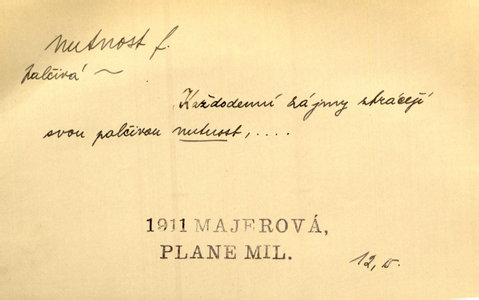 nutnost f.
palčivá ~
Každodenní zájmy ztrácejí
svou palčivou nutnost, ....
1911 MAJEROVÁ,
PLANE MIL.
12,